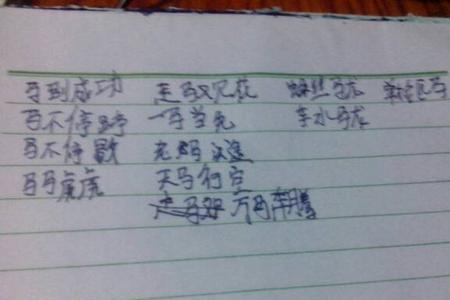 马到成功 走马观花 蛛丝马迹
马不停蹄 一马当先 车水马龙
马不停歇 老马识途
马马虎虎 天马行空
万马奔腾